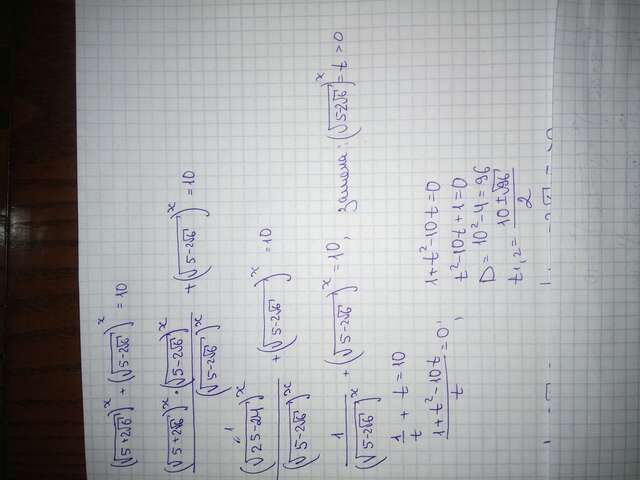 (√(5+2√6))^x + (√(5-2√6))^x = 10
((√(5+2√6))^x · (√(5-2√6))^x)/(√(5-2√6))^x + (√(5-2√6))^x = 10
(√(25-24))^x/(√(5-2√6))^x + (√(5-2√6))^x = 10
1/(√(5-2√6))^x + (√(5-2√6))^x = 10, замена: (√(5-2√6))^x = t > 0
1/t + t = 10
(1+t²-10t)/t = 0;
1+t²-10t=0
t²-10t+1=0
D = 10²-4=96
t1,2 = (10±√96)/2